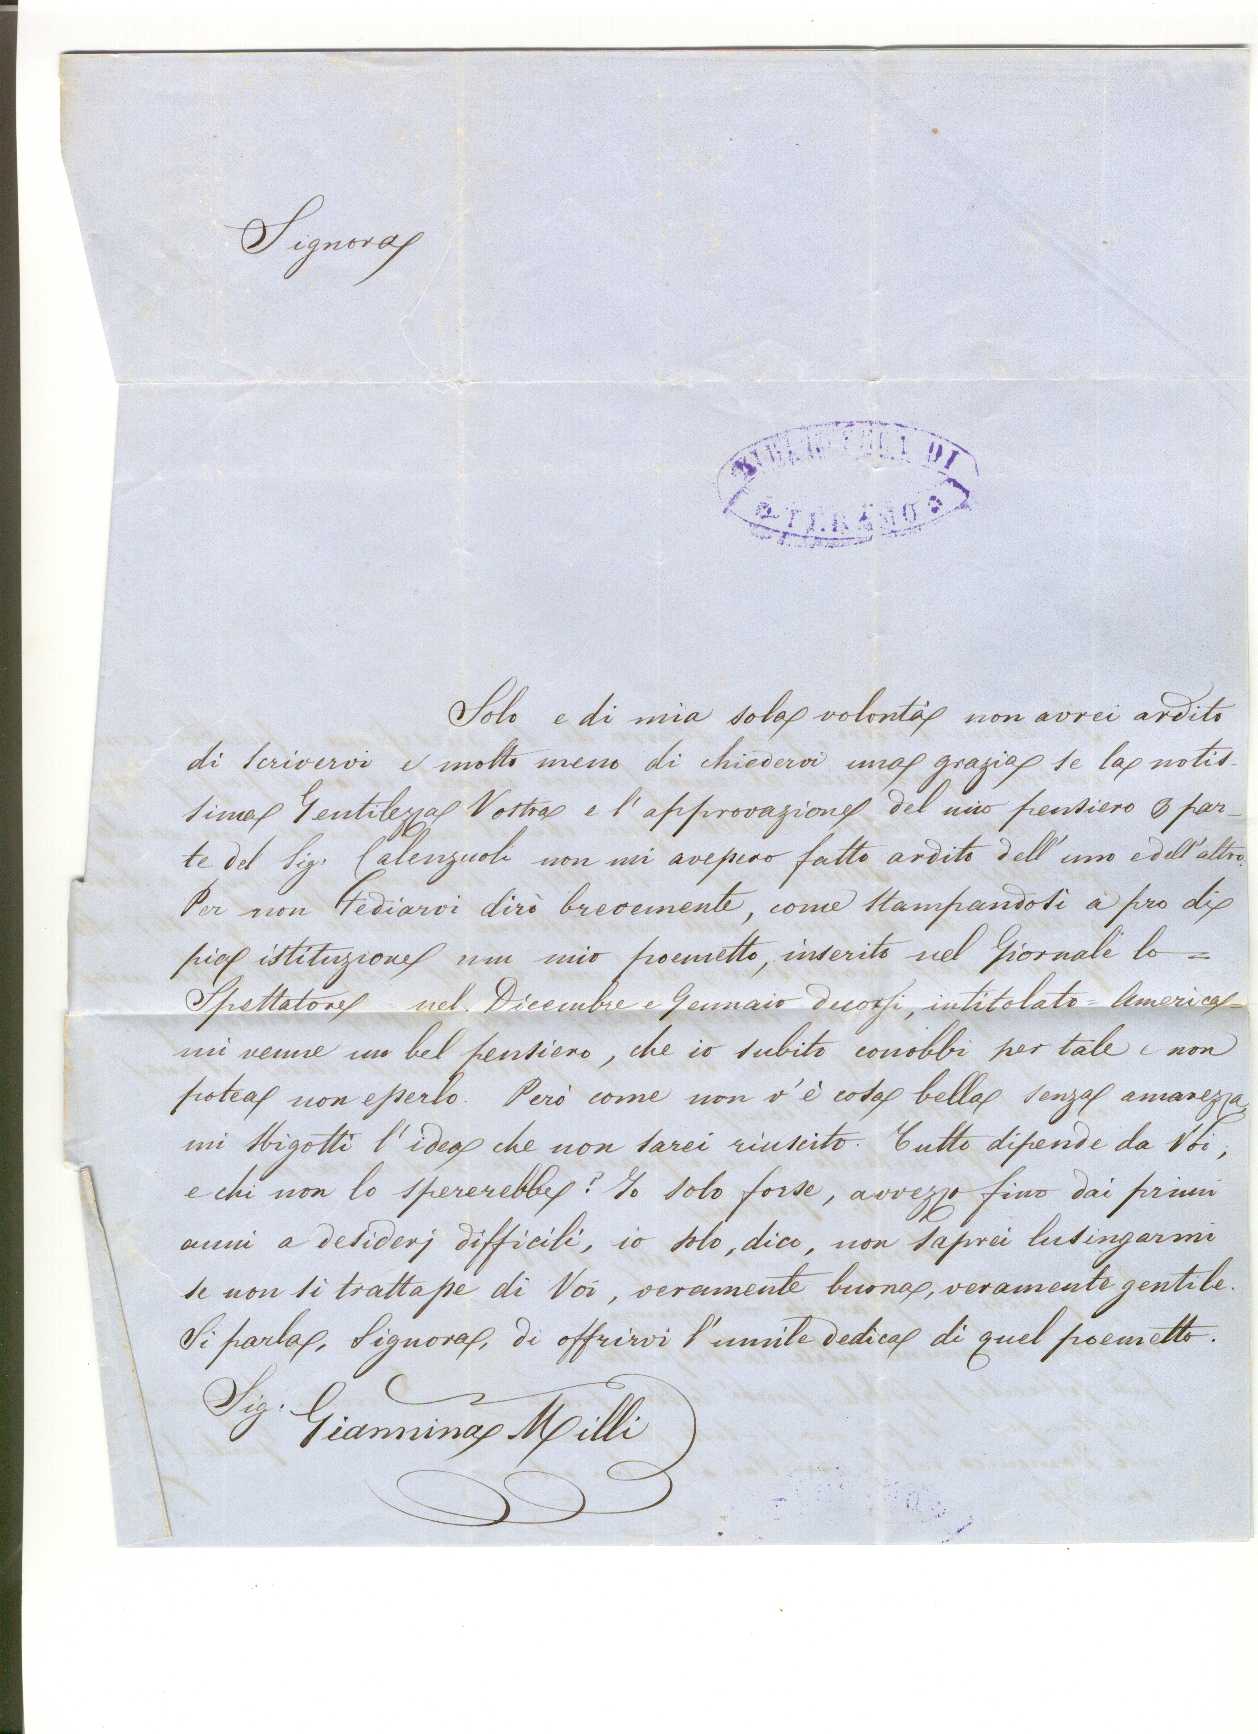 Signora
BIBLIOTECA DI
TERAMO
Solo e di mia sola volontà non avrei ardito
di scrivervi e molto meno di chiedervi una grazia se la notis-
sima Gentilezza Vostra e l'approvazione del mio pensiero per par-
te del Sig. Calenzuoli non mi avessero fatto ardito dell'uno e dell'altro.
Per non tediarvi dirò brevemente, come stampandosi a pro di
pia istituzione un mio poemetto, inserito nel Giornale lo =
Spettatore nel Dicembre e Gennaio decorsi, intitolato = America =
mi venne un bel pensiero, che io subito conobbi per tale e non
potea non esserlo. Però come non v'è cosa bella senza amarezza,
mi sbigottì l'idea che non sarei riuscito. Tutto dipende da Voi,
e chi non lo spererebbe? Io solo forse, avvezzo fino dai primi
anni a desiderj difficili, io solo, dico, non saprei lusingarmi
se non si trattasse di Voi, veramente buona, veramente gentile.
Si parla, Signora, di offrirvi l'umile dedica di quel poemetto.
Sig. Giannina Milli